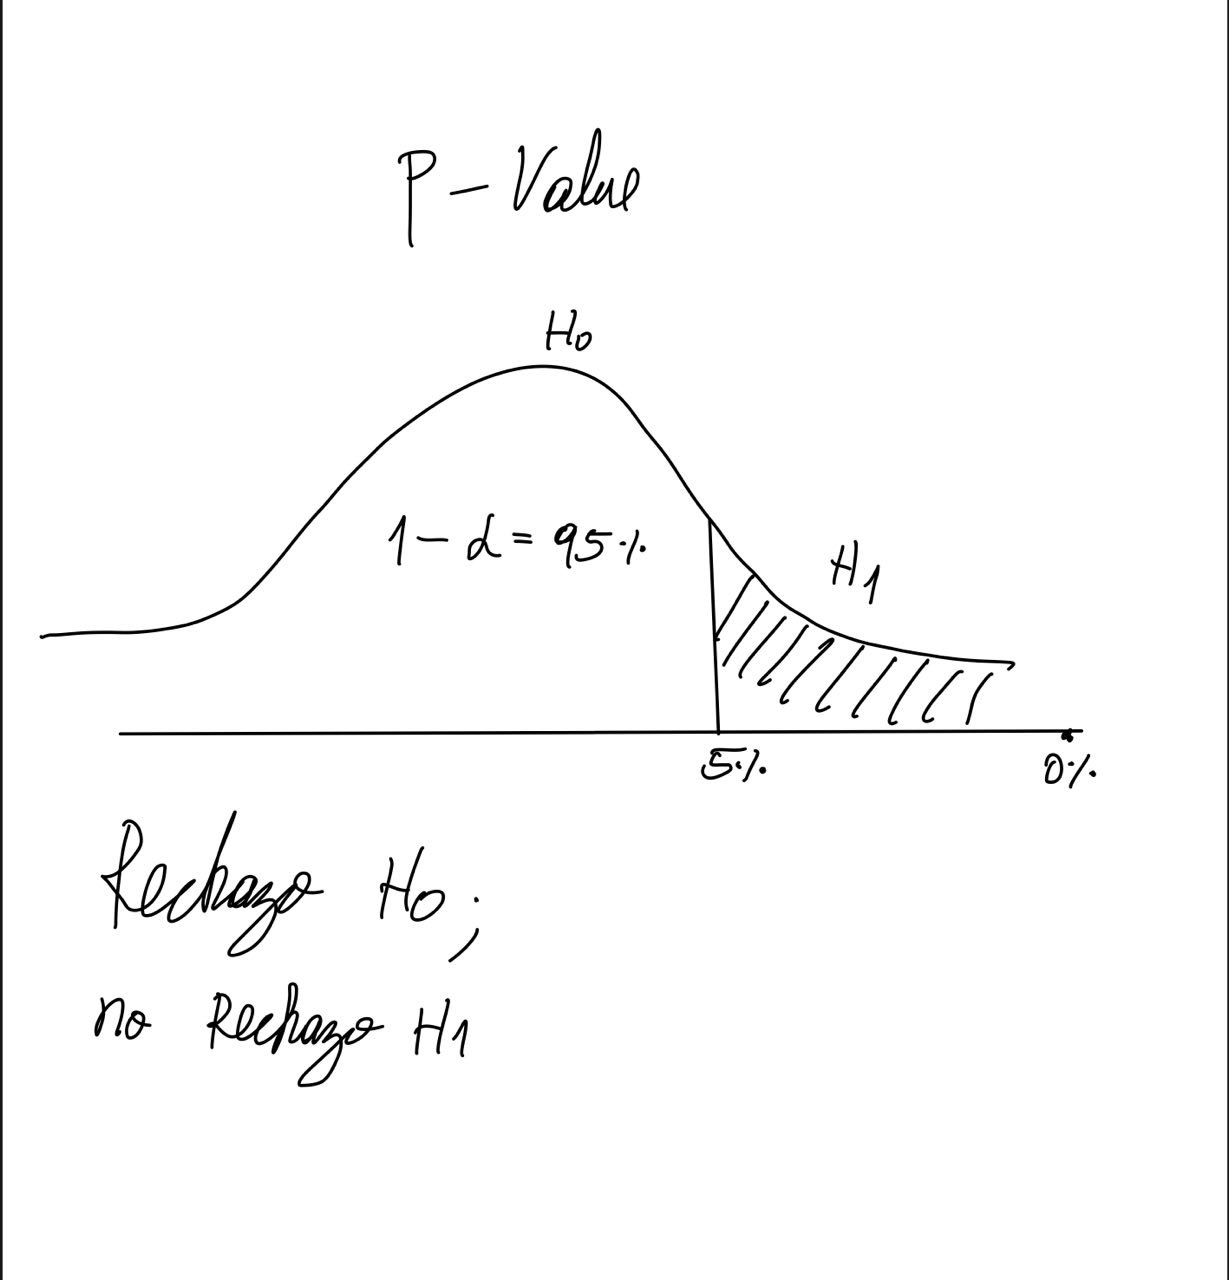 P - Value
H0
1 - α = 95%
H1
5%
0%
Rechazo H0;
no Rechazo H1